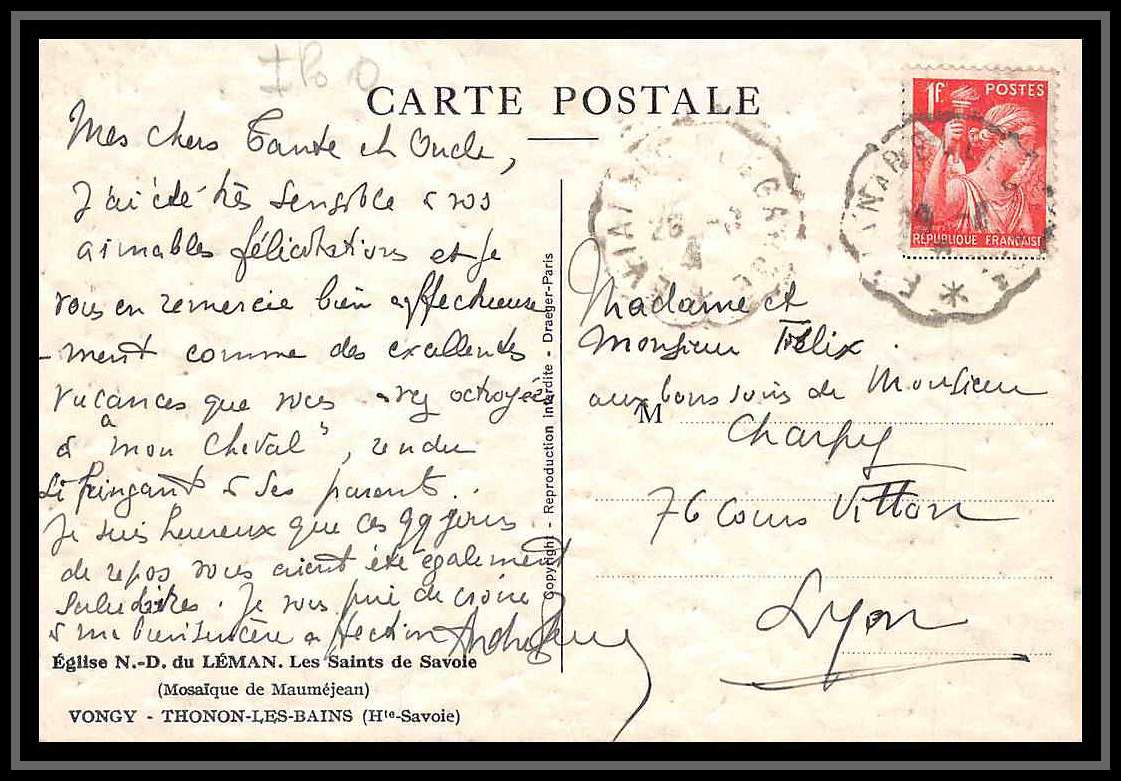 CARTE POSTALE
Mes chers Tante et Oncle,
J'ai été très sensible à vos
aimables félicitations et je
vous en remercie bien affectueuse
-ment comme des excellentes
vacances que vous avez octroyées
à "mon cheval", rendu
si fringant à ses parents..
Je suis heureux que ces qq jours
de repos vous aient été également
salutaires. Je vous prie de croire
à ma bien sincère affection
Église N.-D. du LÉMAN. Les Saints de Savoie
(Mosaïque de Mauméjean)
VONGY - THONON-LES-BAINS (Hte-Savoie)
Copyright - Reproduction Interdite - Draeger-Paris
1F POSTES
RÉPUBLIQUE FRANÇAISE
Madame et
Monsieur Félix.
aux bons soins de Monsieur
M
Charpy
76 cours Vitton
Lyon